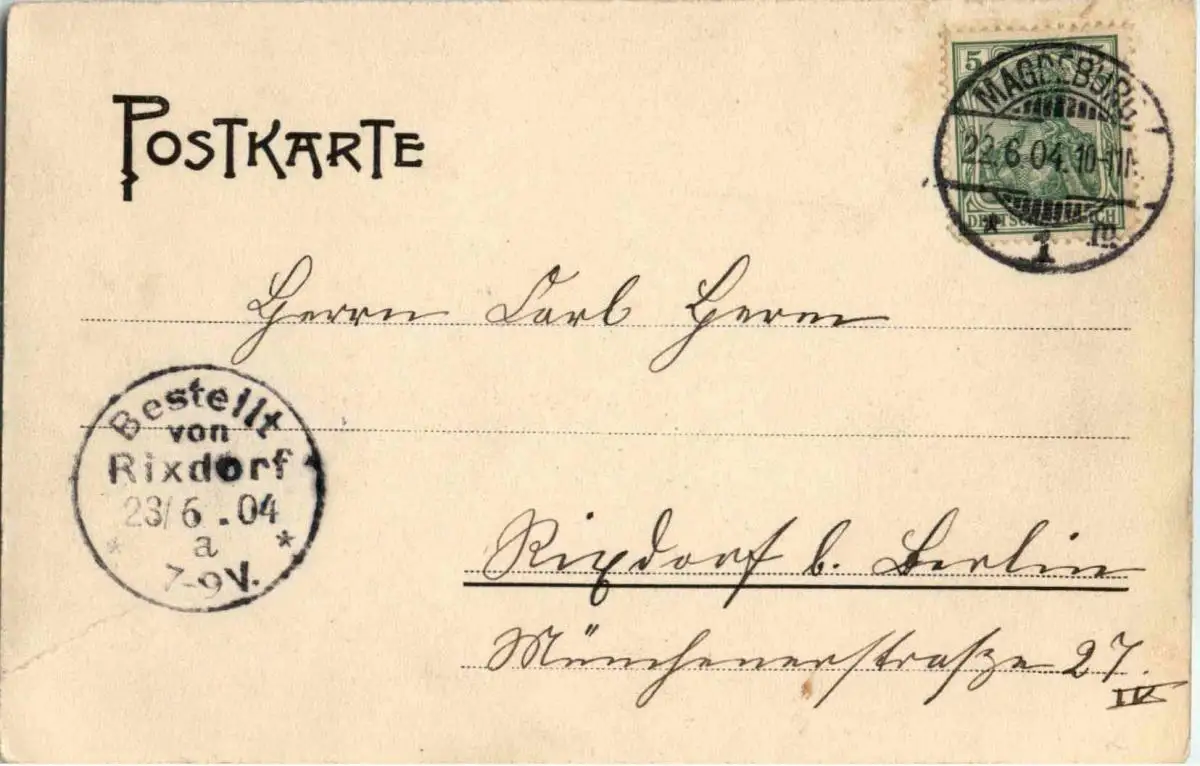 POSTKARTE
5 5
MAGDEBURG
22.6.04.10-11N.
DEUTSCHES REICH
* 1 m
Herrn Carl Herm
Bestellt
von
Rixdorf
23/6.04
* a *
7-9V.
Rixdorf b. Berlin
Münchenerstraße 27.
IV